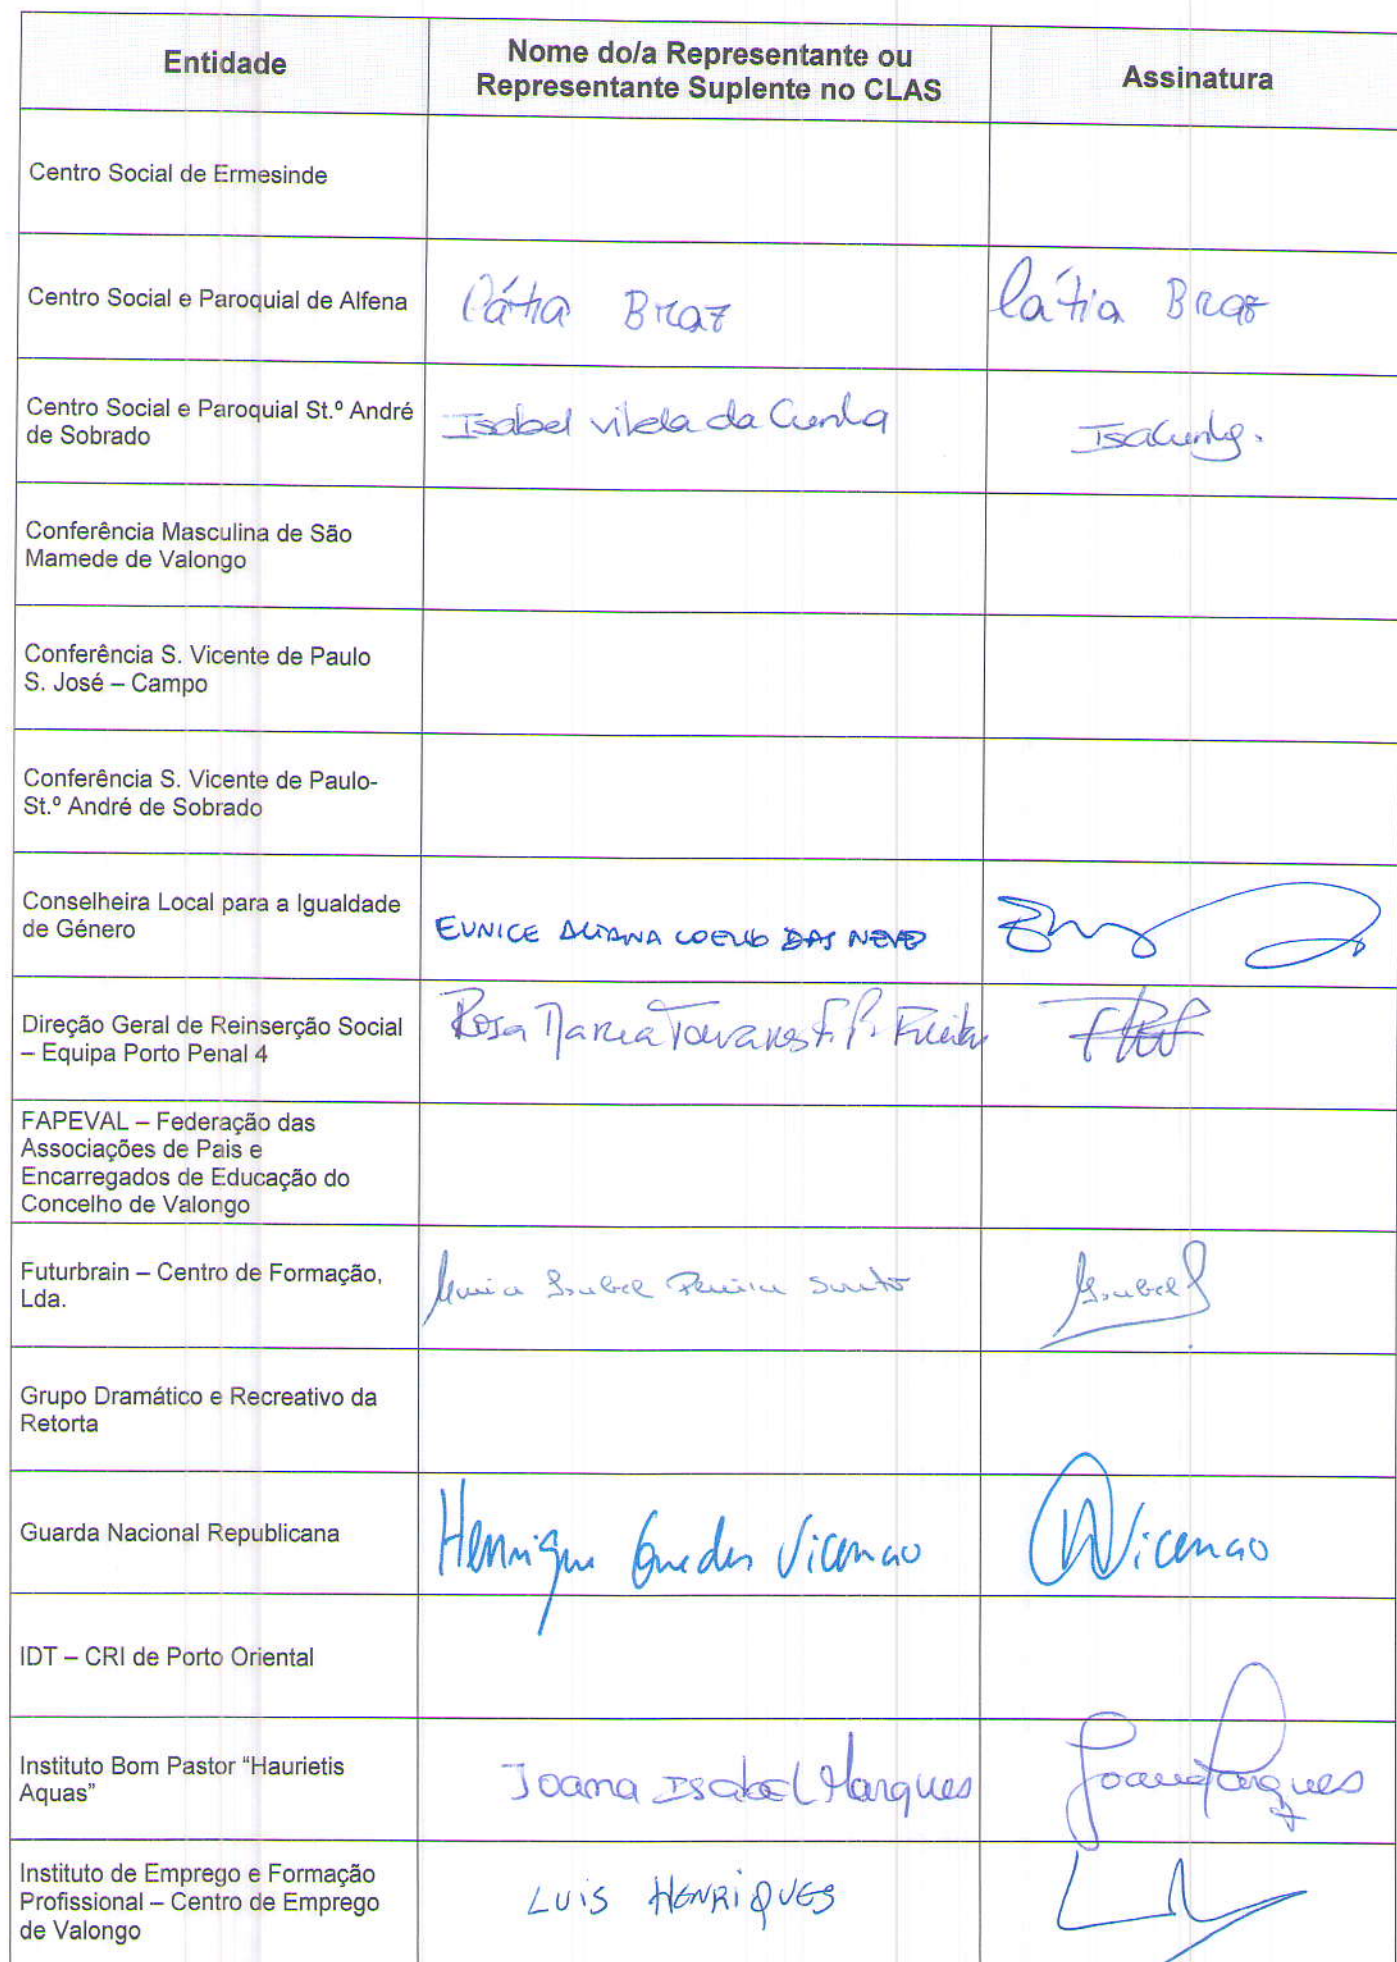 Entidade
Nome do/a Representante ou
Representante Suplente no CLAS
Assinatura
Centro Social de Ermesinde
Centro Social e Paroquial de Alfena
Cátia Braz
Cátia Braz
Centro Social e Paroquial St.º André
de Sobrado
Isabel Vilela da Cunha
IsaCunha.
Conferência Masculina de São
Mamede de Valongo
Conferência S. Vicente de Paulo
S. José – Campo
Conferência S. Vicente de Paulo-
St.º André de Sobrado
Conselheira Local para a Igualdade
de Género
EUNICE COELHO DAS NEVES
Direção Geral de Reinserção Social
– Equipa Porto Penal 4
Rosa Maria Tavares F. P. Freitas
FAPEVAL – Federação das
Associações de Pais e
Encarregados de Educação do
Concelho de Valongo
Futurbrain – Centro de Formação,
Lda.
Maria Isabel Pereira
Isabel
Grupo Dramático e Recreativo da
Retorta
Guarda Nacional Republicana
Henrique Guedes Vicêncio
Vicêncio
IDT – CRI de Porto Oriental
Instituto Bom Pastor “Haurietis
Aquas”
Joana Isabel Marques
Joana Marques
Instituto de Emprego e Formação
Profissional – Centro de Emprego
de Valongo
LUIS HENRIQUES